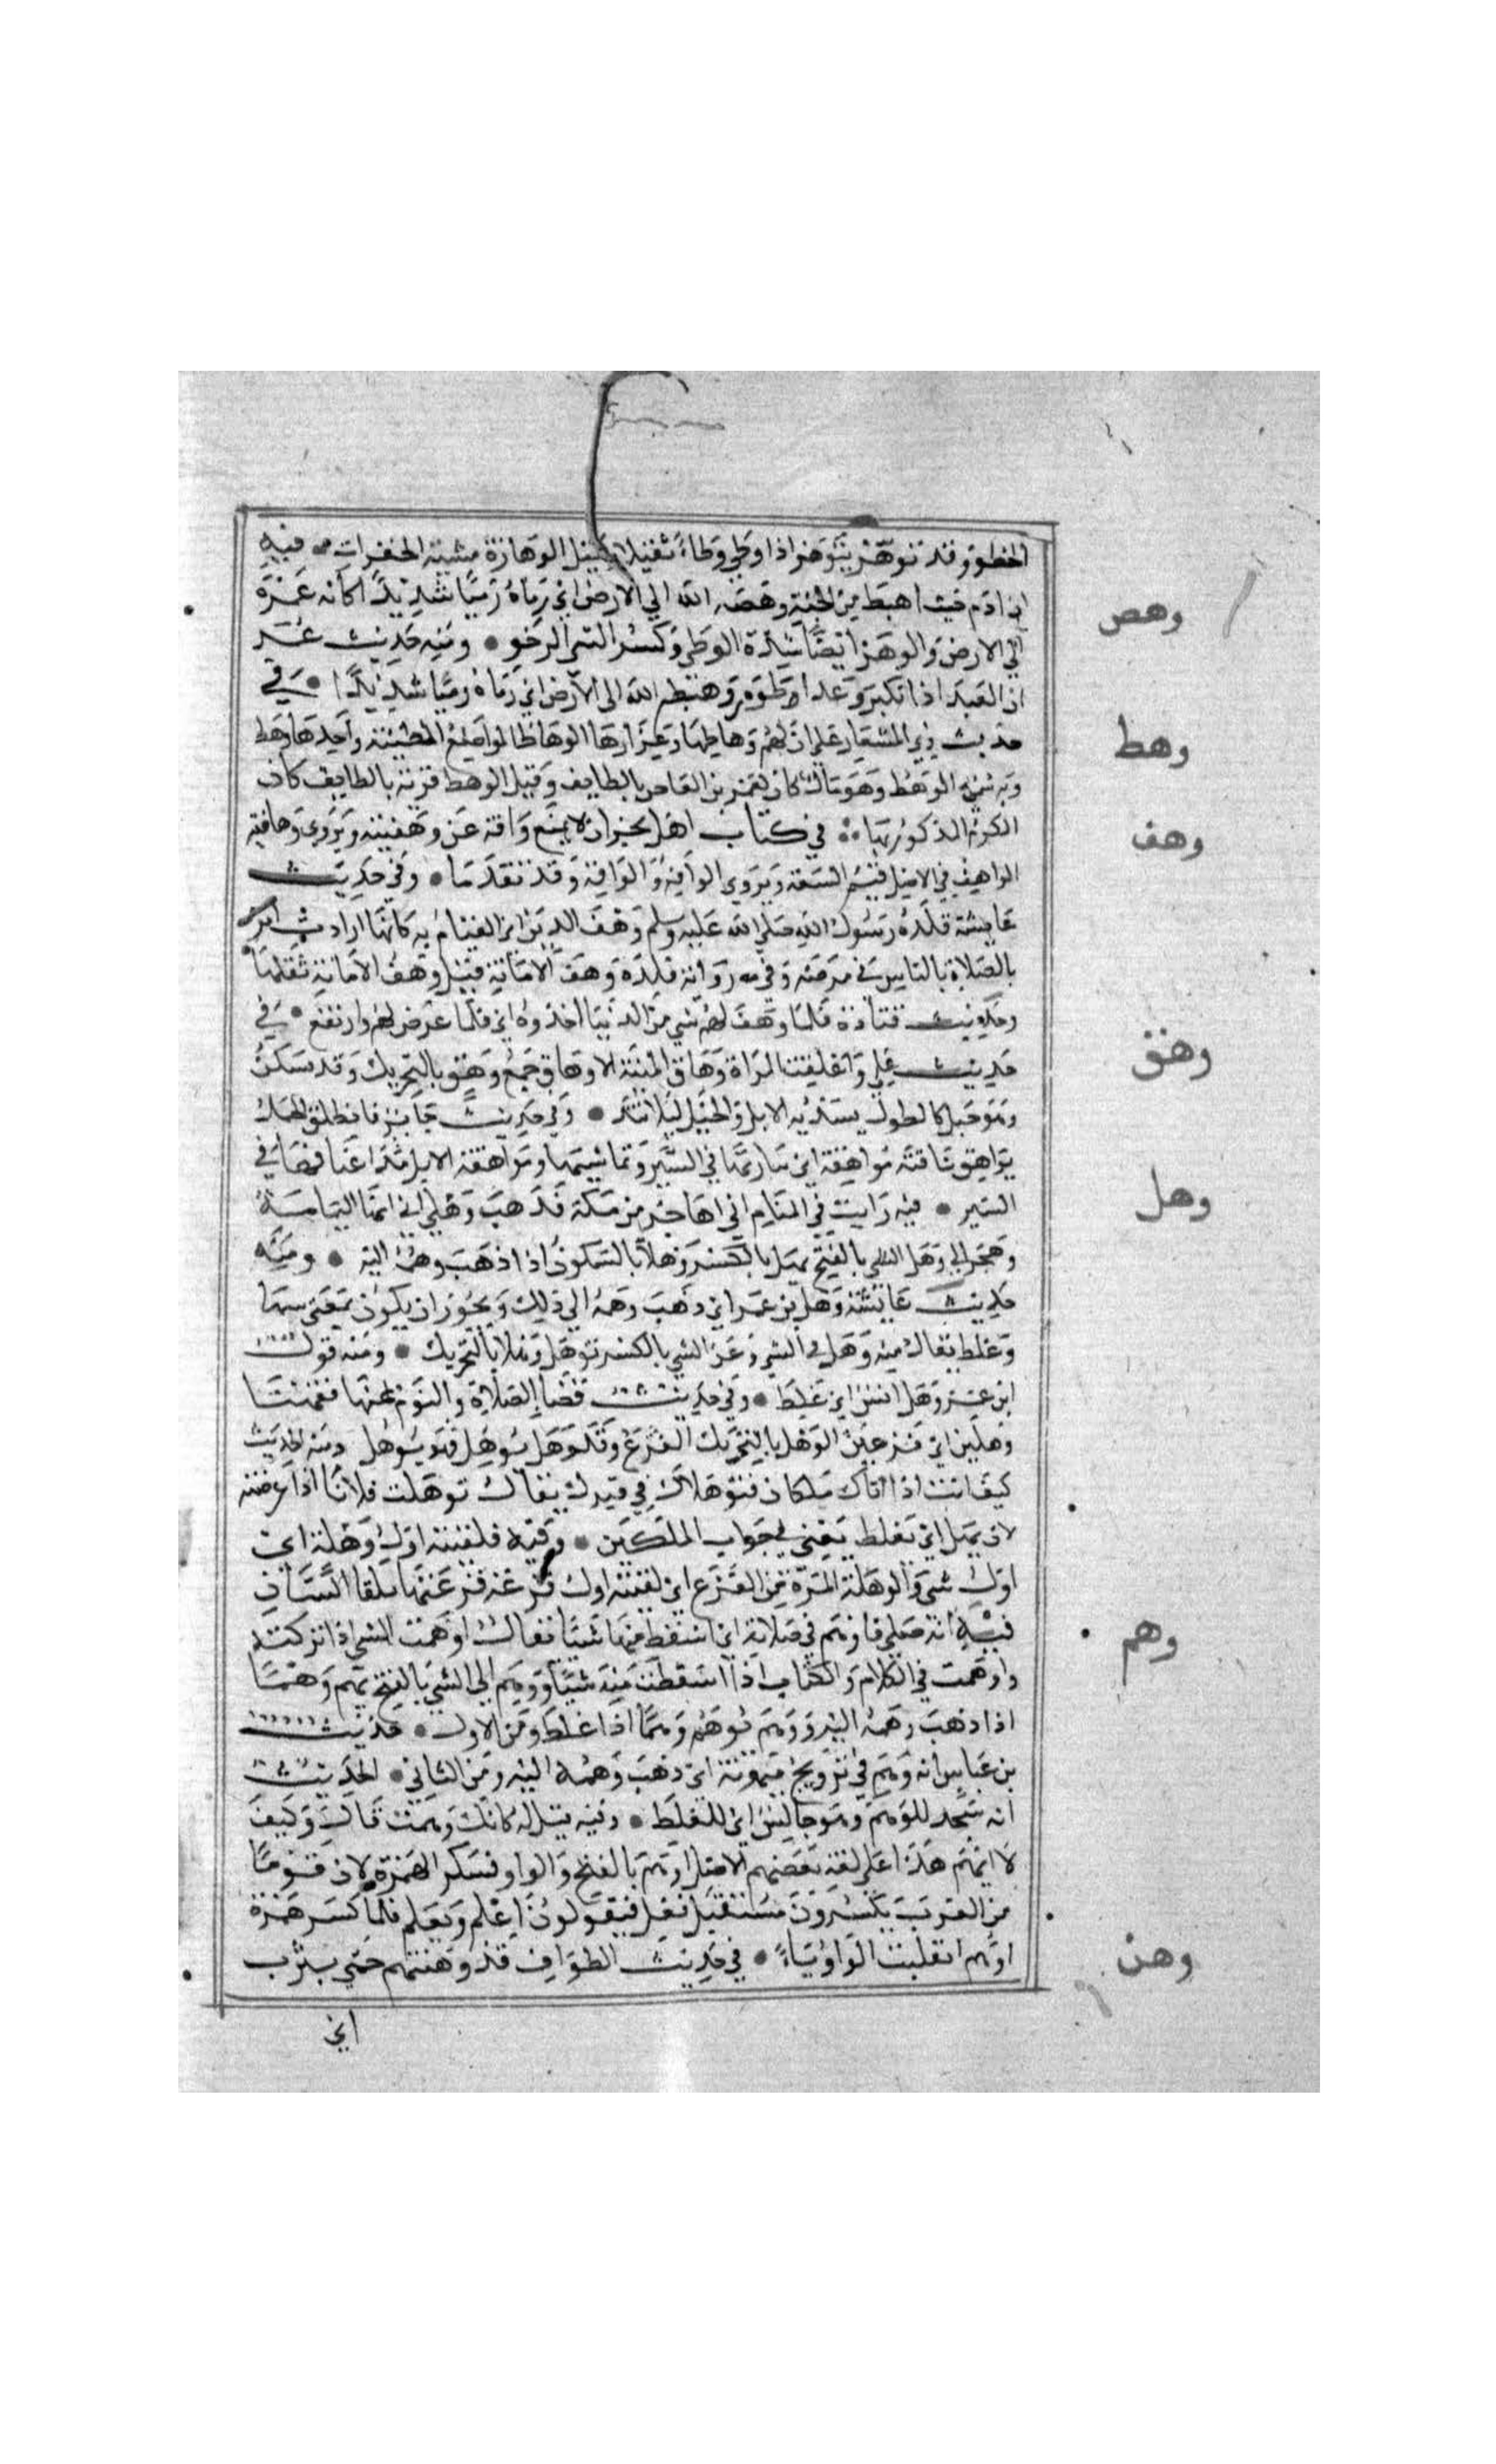 الخطو وقد توهز يتوهز اذا وطي وطاء ثقيلا وقيل الوهازة مشية الخفرات فيه
ان ادم حيث اهبط من الجنة وهصه الله الي الارض اي رماه رميا شديدا كانه غمزه
وهص
الي الارض والوهز ايضا شدة الوطي وكسر الشي الرخو ومنه حديث عمر
ان العبد اذا تكبر وعدا طوره وهصه الله الى الارض اي رماه رميا شديدا في
حديث ذي المشعار علي ان لهم وهاطها وعزازها الوهاط المواضع المطمئنة واحدها وهط
وهط
وبه سمي الوهط وهو مال كان لعمرو بن العاص بالطايف وقيل الوهط قرية بالطايف كان
الكرم المذكور بها في كتاب اهل نجران لا يمنع وافه عن وهفيته ويروى وهافته
وهف
الواهف في الاصل قيم البيعة ويروى الوافه والواقه وقد تقدما وفي حديث
عايشة قلده رسول الله صلي الله عليه وسلم وهف الدين اي القيام به كانها ارادت امره
بالصلاة بالناس في مرضه وفي رواية قلده وهف الامانة قيل وهف الامانة ثقلها
وحديث قتادة كلما وهف لهم شي من الدنيا اخذوه اي كلما عرض لهم وارتفع في
حديث علي واعلقت المراة وهاق المنية الاوهاق جمع وهق بالتحريك وقد يسكن
وهق
وهو حبل كالطول يشد به الابل والخيل ليلا تند وفي حديث جابر فانطلق الجمل
يواهق ناقته مواهقة اي يباريها في السير ويماشيها ومواهقة الابل مد اعناقها في
السير فيه رايت في المنام اني اهاجر من مكة فذهب وهلي الي انها اليمامة
وهل
وهجر وهل الي الشي بالفتح يهل بالكسر وهلا بالسكون اذا ذهب وهمه اليه ومنه
حديث عايشة وهل بن عمر اي ذهب وهمه الي ذلك ويجوز ان يكون بمعني سها
وغلط يقال منه وهل في الشي وعن الشي بالكسر يوهل وهلا بالتحريك ومنه قول
ابن عمر وهل انس اي غلط وفي حديث قضا الصلاة والنوم عنها فقمنا
وهلين اي فزعين الوهل بالتحريك الفزع وقد وهل يوهل فهو يوهل ومنه الحديث
كيف انت اذا اتاك ملكان فتوهلاك في قبرك يقال توهلت فلانا اذا عرضته
لان يهل اي يغلط يعني في جواب الملكين وفيه فلقيته اول وهلة اي
اول شي والوهلة المرة من الفزع اي لقيته اول فزعة فزعتها بلقا انسان
فيه انه صلي فاوهم في صلاته اي اسقط منها شيا يقال اوهمت الشي اذا تركته
وهم
واوهمت في الكلام والكتاب اذا اسقطت منه شيا ووهم الي الشي بالفتح يهم وهما
اذا ذهب وهمه اليه ووهم يوهم وهما اذا غلط ومن الاول حديث
بن عباس انه وهم في تزويج ميمونة اي ذهب وهمه اليه ومن الثاني الحديث
انه سجد للوهم وهو جالس اي للغلط وفيه قيل له كانك وهمت قال وكيف
لا ايهم هذا علي لغة بعضهم الاصل اوهم بالفتح والواو فكسر الهمزة لان قوما
من العرب يكسرون مستقبل فعل فيقولون اعلم وتعلم فلما كسر همزة
اوهم انقلبت الواو ياء في حديث الطواف قد وهنتهم حمي يثرب
وهن
اي